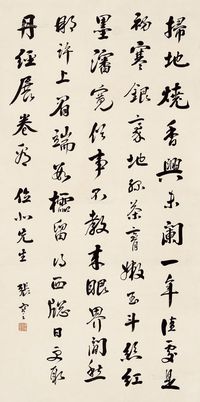 掃地燒香興未闌一年佳處是
初寒銀毫地綠茶膏嫩玉斗絲紅
墨瀋寬俗事不教來眼界閒愁
那許上眉端數櫺留得西窗日更取
丹經展卷看 先生 張謇